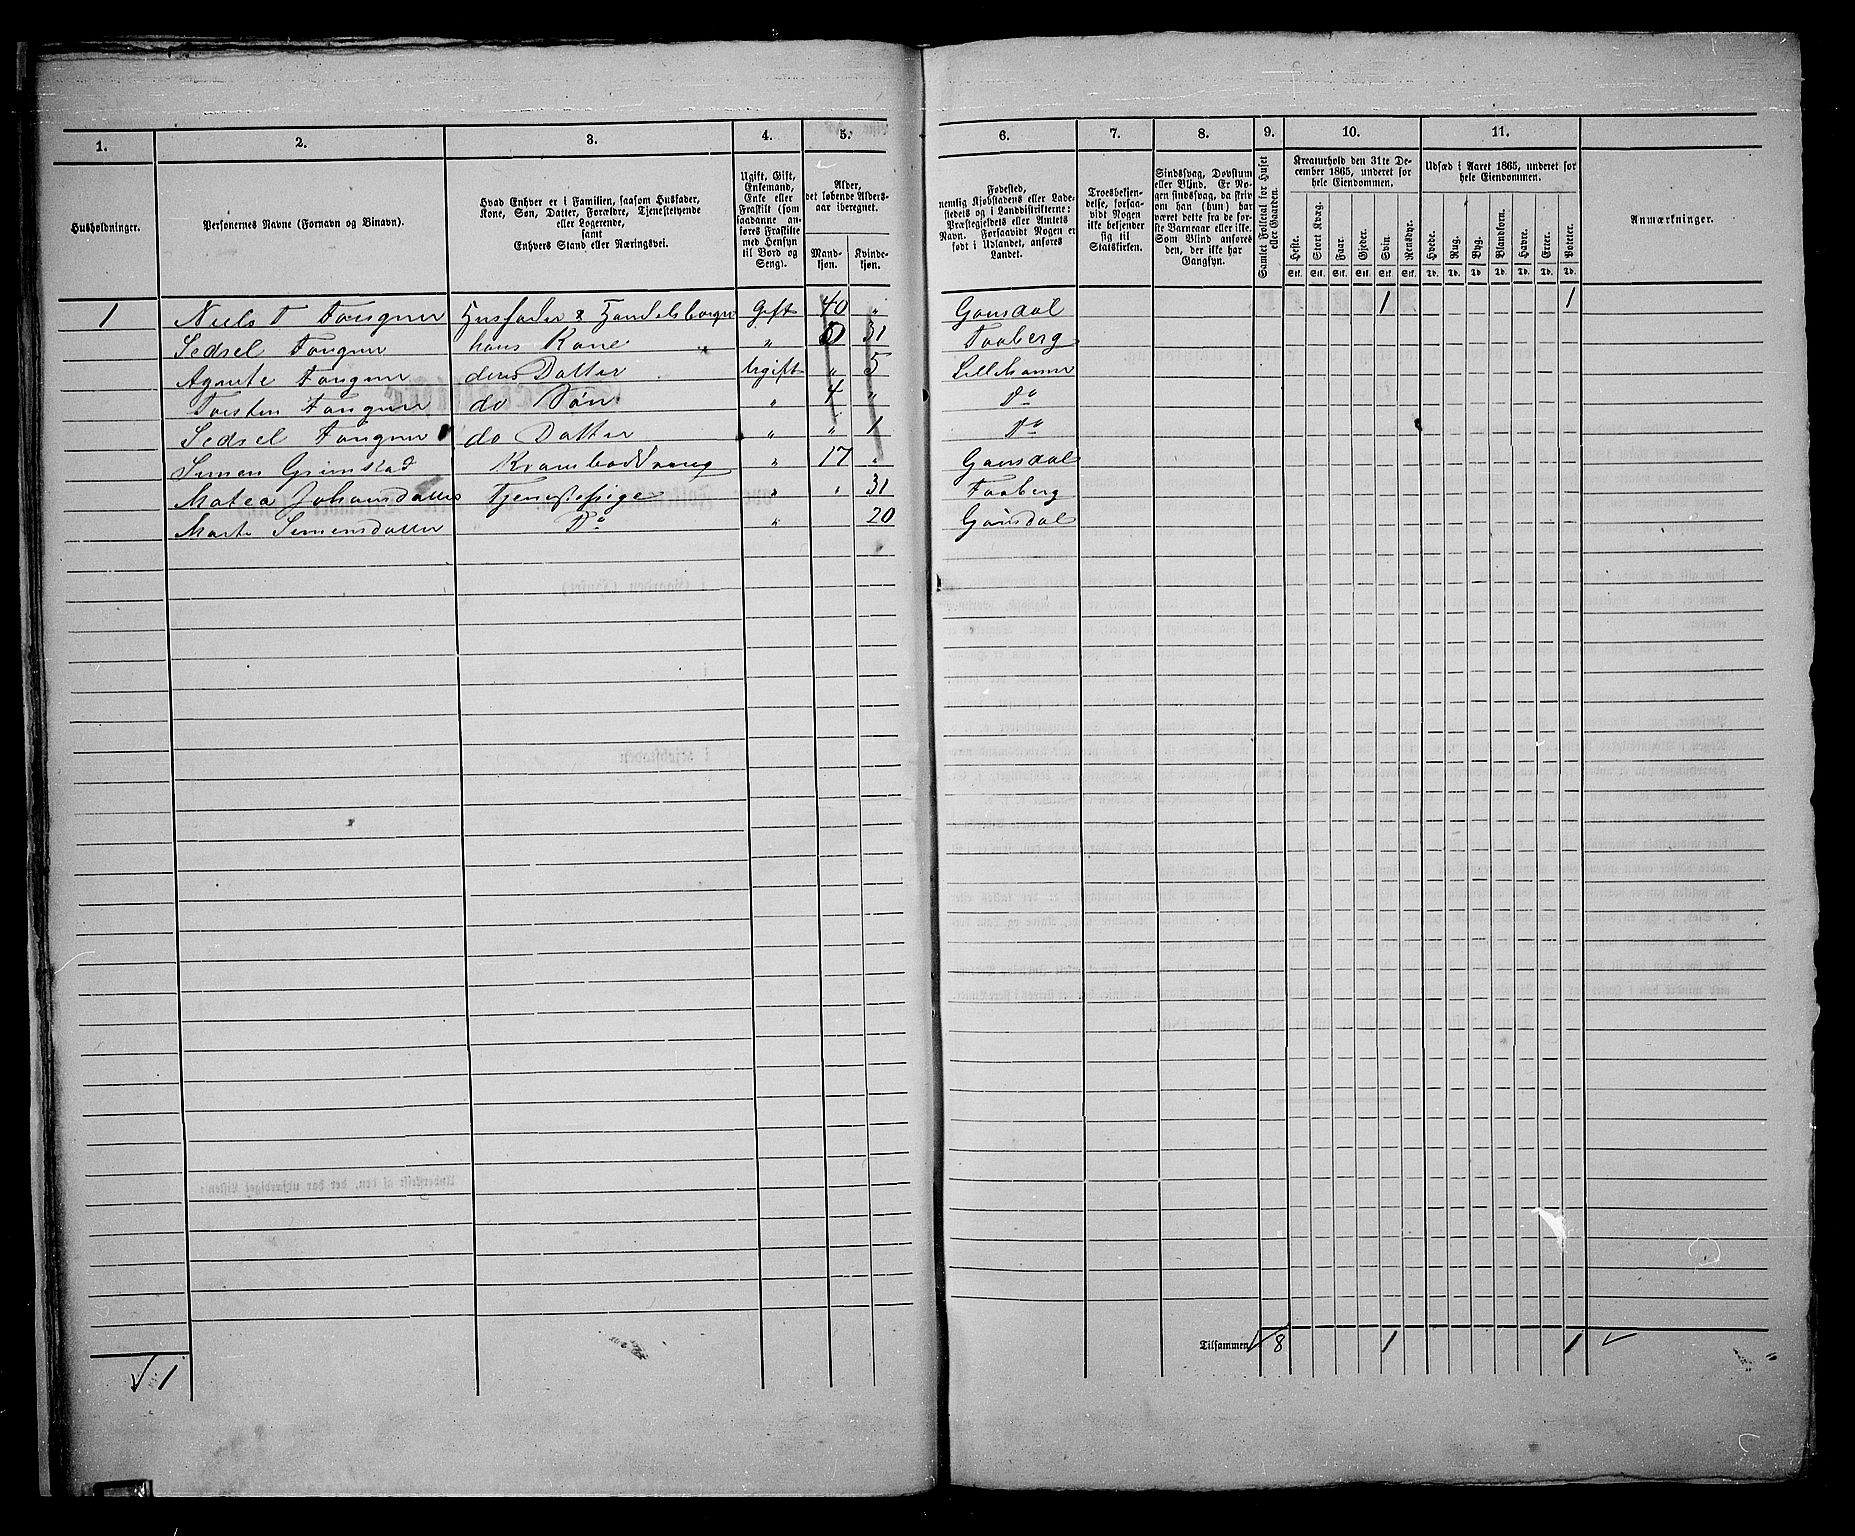 1. 2. 3. 4. 5. 6. 7. 8. 9. 10. 11.
Husholdninger.
Personernes Navne (Fornavn og Binavn).
Hvad Enhver er i Familien, saasom Husfader,
Kone, Søn, Datter, Forældre, Tjenestetyende
eller Logerende,
samt
Enhvers Stand eller Næringsvei.
Ugift, Gift,
Enkemand,
Enke eller
Fraskilt (som
saadanne an-
føres Fraskilte
med Hensyn
til Bord og
Seng).
Alder,
det løbende Alders-
aar iberegnet.
Mand-
kjøn.
Kvinde-
kjøn.
Fødested,
nemlig Kjøbstadens eller Lade-
stedets og i Landdistrikterne:
Præstegjeldets eller Amtets
Navn. Forsaavidt Nogen er
født i Udlandet, anføres
Landet.
Troesbekjen-
delse, forsaa-
vidt Nogen
ikke bekjender
sig til
Statskirken.
Sindssvag, Døvstum
eller Blind. Er No-
gen sindssvag, da skriv
om han (hun) har
været dette fra de før-
ste Barneaar eller ikke.
Som Blind anføres
den, der ikke har
Gangsyn.
Samlet Folketal for Huset
eller Gaarden.
Kreaturhold den 31te De-
cember 1865, underet for
hele Eiendommen.
Heste. Stort Kvæg. Faar. Gjeder. Svin. Rensdyr.
Stk. Stk. Stk. Stk. Stk. Stk.
Udsæd i Aaret 1865, underet for
hele Eiendommen.
Hvede. Rug. Byg. Blandkorn. Havre. Erter. Poteter.
Td. Td. Td. Td. Td. Td. Td.
Anmærkninger.
1 Niels T Fougner Husfader & Handelsborger Gift 40 " Gausdal 1 1
Sedsel Fougner hans Kone " 31 Faaberg
Agnete Fougner deres Datter Ugift " 5 Lillehammer
Torsten Fougner do Søn " 4 " Do
Sedsel Fougner do Datter " " 1 Do
Simen Grimstad Krambodsvend " 17 " Gausdal
Matea Johansdatter Tjenestepige " " 31 Faaberg
Marte Simensdatter Do " 20 Gausdal
Tilsammen 8 1 1
1